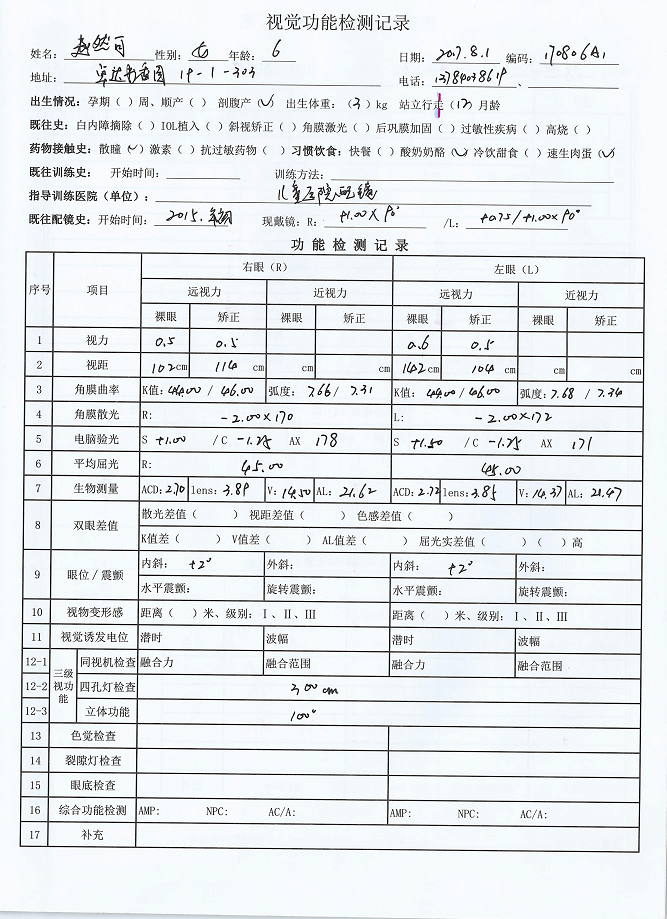 视觉功能检测记录
姓名: 性别: 女 年龄: 6 日期: 2017.8.1 编码: 170806A1
地址: 19-1-303 电话:
出生情况: 孕期( )周、顺产( ) 剖腹产(✓) 出生体重:(3)kg 站立行走(12)月龄
既往史: 白内障摘除( )IOL植入( )斜视矫正( )角膜激光( )后巩膜加固( )过敏性疾病( )高烧( )
药物接触史: 散瞳(✓)激素( )抗过敏药物( )习惯饮食: 快餐( )酸奶奶酪(✓)冷饮甜食( )速生肉蛋(✓)
既往训练史: 开始时间: 训练方法:
指导训练医院(单位): 儿童医院配镜
既往配镜史: 开始时间: 2015. 现戴镜: R: +1.00×90° /L: +0.75/+1.00×90°
功能检测记录
序号 项目 右眼(R) 左眼(L)
远视力 近视力 远视力 近视力
裸眼 矫正 裸眼 矫正 裸眼 矫正 裸眼 矫正
1 视力 0.5 0.5 0.6 0.5
2 视距 102cm 114 cm cm cm 142cm 104 cm cm cm
3 角膜曲率 K值: 44.00 / 46.00 弧度: 7.66 / 7.31 K值: 44.00 / 46.00 弧度: 7.68 / 7.34
4 角膜散光 R: -2.00×170 L: -2.00×172
5 电脑验光 S +1.00 /C -1.75 AX 178 S +1.50 /C -1.75 AX 171
6 平均屈光 R: 45.00 45.00
7 生物测量 ACD: 2.70 lens: 3.89 V: 14.50 AL: 21.62 ACD: 2.72 lens: 3.85 V: 14.37 AL: 21.47
8 双眼差值 散光差值( ) 视距差值( ) 色感差值( )
K值差( ) V值差( ) AL值差( ) 屈光实差值( )( )高
9 眼位/震颤 内斜: +2° 外斜: 内斜: +2° 外斜:
水平震颤: 旋转震颤: 水平震颤: 旋转震颤:
10 视物变形感 距离( )米、级别: Ⅰ、Ⅱ、Ⅲ 距离( )米、级别: Ⅰ、Ⅱ、Ⅲ
11 视觉诱发电位 潜时 波幅 潜时 波幅
12-1 三级视功能 同视机检查 融合力 融合范围 融合力 融合范围
12-2 四孔灯检查 300cm
12-3 立体功能 100"
13 色觉检查
14 裂隙灯检查
15 眼底检查
16 综合功能检测 AMP: NPC: AC/A: AMP: NPC: AC/A:
17 补充